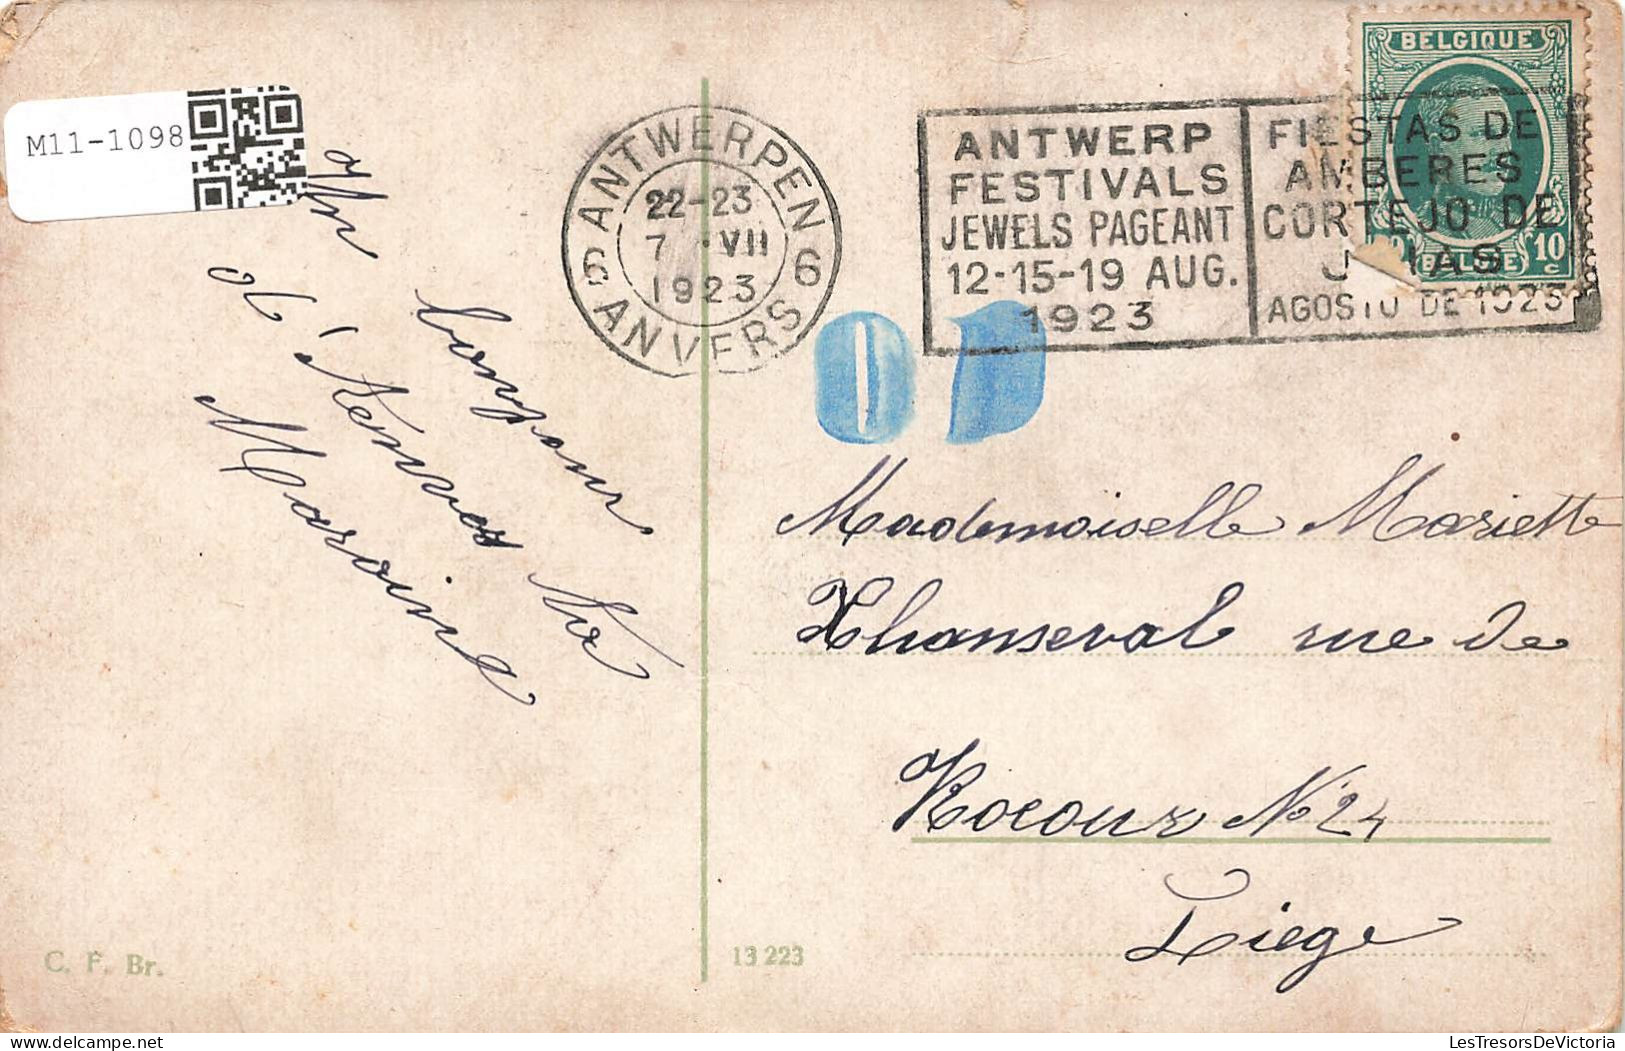 M11-1098
ANTWERPEN
22-23
7 VII
1923
6 6
ANVERS
ANTWERP
FESTIVALS
JEWELS PAGEANT
12-15-19 AUG.
1923
FIESTAS DE
AMBERES
CORTEJO DE
AGOSTO DE 1923
BELGIQUE
10 c
BELGIË
bonjour
d'
Mademoiselle Mariette
rue de
Rocour N° 24
Liege
C. F. Br.
13 223
www.LesTresorsDeVictoria.com